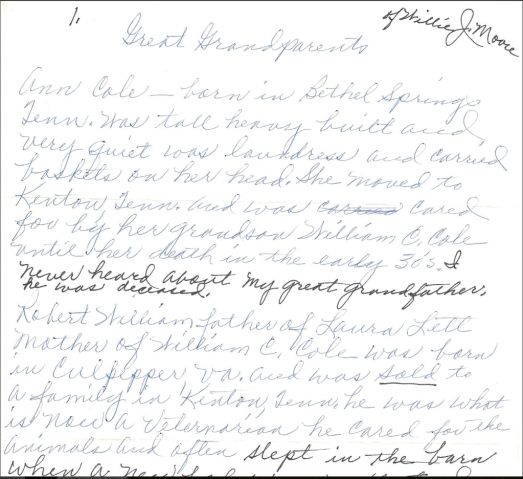 1.
of Willie J. Moore
Great Grandparents
Ann Cole — born in Bethel Springs
Tenn. Was tall heavy built and
very quiet was laundress and carried
baskets on her head. She moved to
Kenton, Tenn. and was carried cared
for by her grandson William C. Cole
until her death in the early 30's. I
never heard about my great grandfather.
he was deceased.
Robert William, father of Laura Lett
Mother of William C. Cole was born
in Culpepper Va. and was sold to
a family in Kenton, Tenn. he was what
is now a Veternarian he cared for the
animals and often slept in the barn
when a new